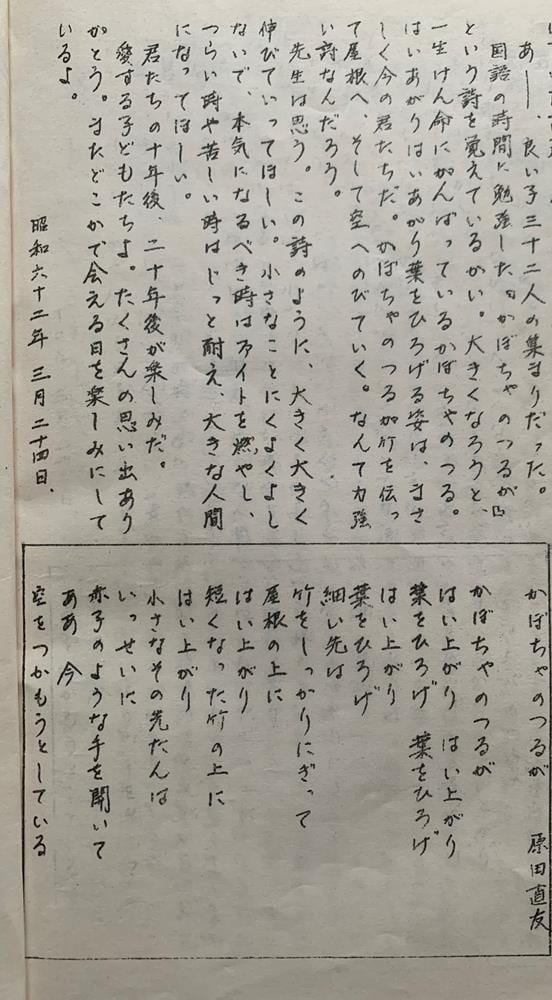 あーー、良い子三十二人の集まりだった。
国語の時間に勉強した『かぼちゃのつるが』
という詩を覚えているかい。大きくなろうと、
一生けん命にがんばっているかぼちゃのつる。
はいあがりはいあがり葉をひろげる姿は、まさ
しく今の君たちだ。かぼちゃのつるが竹を伝っ
て屋根へ、そして空へのびていく。なんて力強
い詩なんだろう。
先生は思う。この詩のように、大きく大きく
伸びていってほしい。小さなことにくよくよし
ないで、本気になるべき時はファイトを燃やし、
つらい時や苦しい時はじっと耐え、大きな人間
になってほしい。
君たちの十年後、二十年後が楽しみだ。
愛する子どもたちよ。たくさんの思い出あり
がとう。またどこかで会える日を楽しみにして
いるよ。
昭和六十二年 三月二十四日、
かぼちゃのつるが 原田直友
かぼちゃのつるが
はい上がり はい上がり
葉をひろげ 葉をひろげ
はい上がり
葉をひろげ
細い先は
竹をしっかりにぎって
屋根の上に
はい上がり
短くなった竹の上に
はい上がり
小さなその先たんは
いっせいに
赤子のような手を開いて
ああ 今
空をつかもうとしている